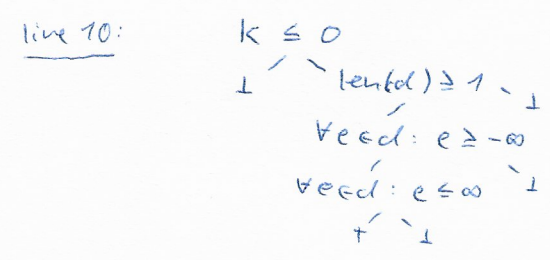 line 10: k ≤ 0
⊥ len(d) ≥ 1 ⊥
∀e∈d: e ≥ -∞
∀e∈d: e ≤ ∞ ⊥
⊤ ⊥